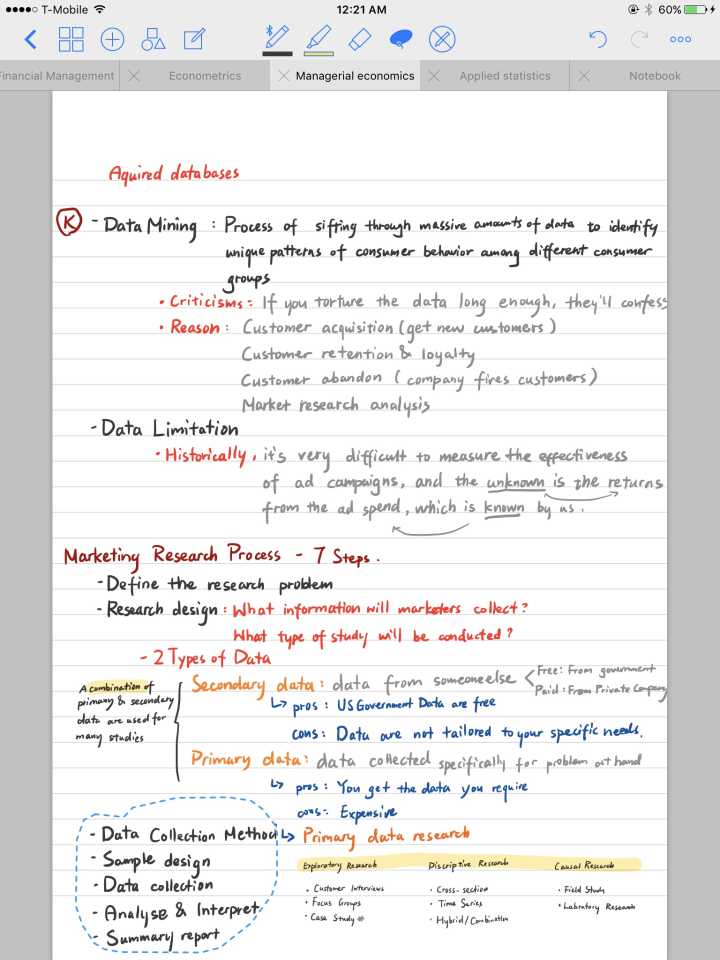 T-Mobile 12:21 AM 60%
Financial Management Econometrics Managerial economics Applied statistics Notebook
Aquired databases
K - Data Mining : Process of sifting through massive amounts of data to identify
unique patterns of consumer behavior among different consumer
groups
• Criticisms : If you torture the data long enough, they'll confess
• Reason : Customer acquisition (get new customers)
Customer retention & loyalty
Customer abandon (company fires customers)
Market research analysis
- Data Limitation
• Historically, it's very difficult to measure the effectiveness
of ad campaigns, and the unknown is the returns
from the ad spend, which is known by us.
Marketing Research Process - 7 Steps.
- Define the research problem
- Research design : What information will marketers collect?
What type of study will be conducted?
- 2 Types of Data
A combination of
primary & secondary
data are used for
many studies
Secondary data : data from someone else
Free : From government
Paid : From Private Company
pros : US Government Data are free
cons : Data are not tailored to your specific needs.
Primary data : data collected specifically for problem at hand
pros : You get the data you require
cons : Expensive
- Data Collection Method
Primary data research
- Sample design
- Data collection
- Analyse & Interpret
- Summary report
Exploratory Research Discriptive Research Causal Research
• Customer Interviews • Cross-section • Field Study
• Focus Groups • Time Series • Labratory Research
• Case Study • Hybrid/Combination